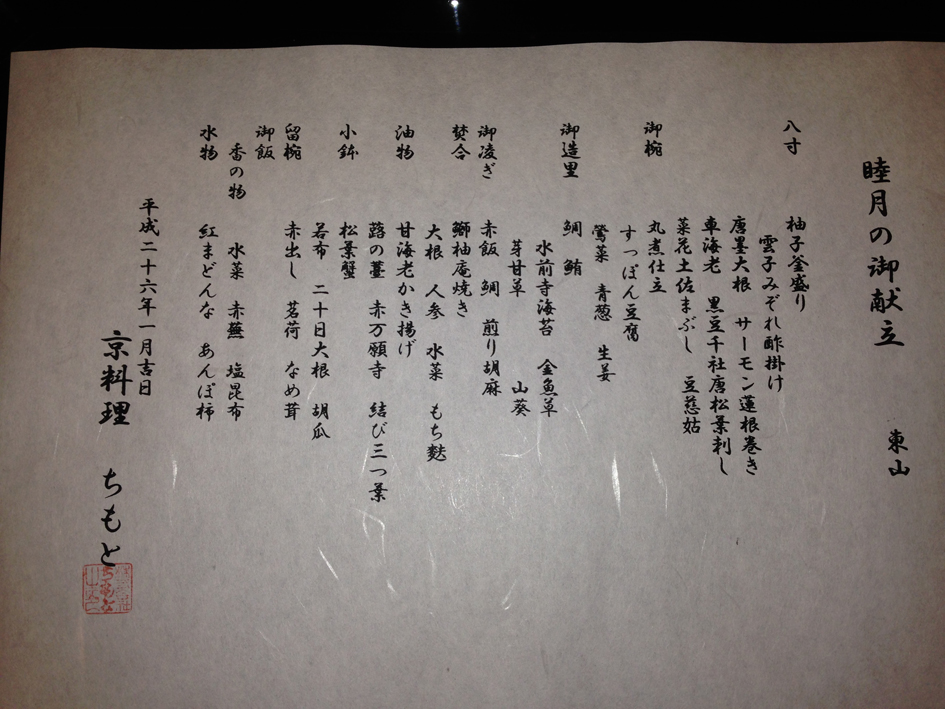 睦月の御献立
東山
八寸
柚子釜盛り
雲子みぞれ酢掛け
唐墨大根 サーモン蓮根巻き
車海老 黒豆千社唐松葉刺し
菜花土佐まぶし 豆慈姑
御椀
丸煮仕立
すっぽん豆腐
鶯菜 青葱 生姜
御造里
鯛 鮪
水前寺海苔 金魚草
芽甘草 山葵
御凌ぎ
赤飯 鯛 煎り胡麻
焚合
鰤柚庵焼き
大根 人参 水菜 もち麩
油物
甘海老かき揚げ
蕗の薹 赤万願寺 結び三つ葉
小鉢
松葉蟹
若布 二十日大根 胡瓜
留椀
赤出し 茗荷 なめ茸
御飯
香の物
水菜 赤蕪 塩昆布
水物
紅まどんな あんぽ柿
平成二十六年一月吉日
京料理 ちもと